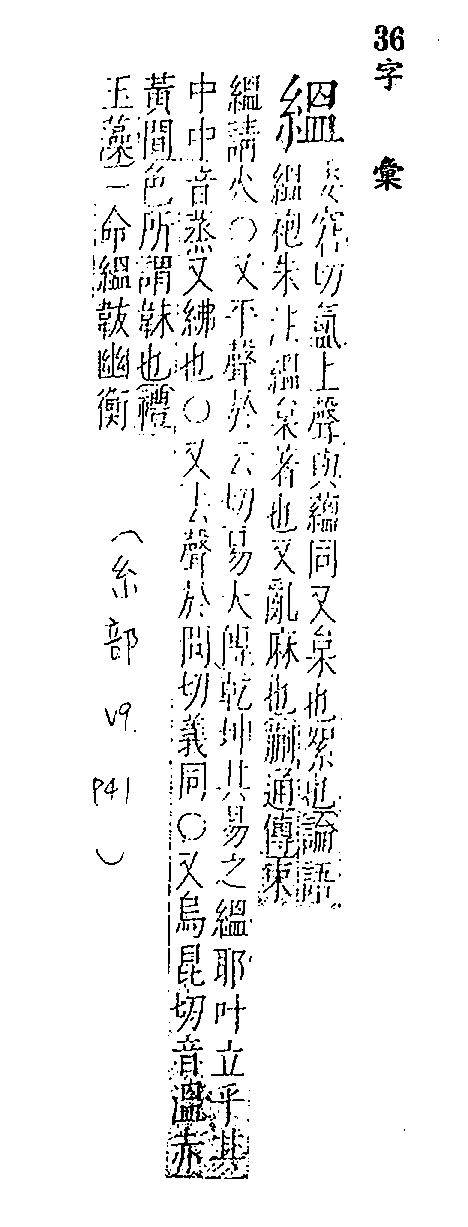 36字 彙
縕委窘切氳上聲與蘊同又枲也絮也論語
縕袍朱注縕枲著也又亂麻也蒯通傳束
縕請火○又平聲於云切易大傳乾坤其易之縕耶叶立乎其
中中音蒸又紼也○又去聲於問切義同○又烏昆切音溫赤
黃間色所謂韎也禮
玉藻一命縕韍幽衡
(糸部 V9. P41)